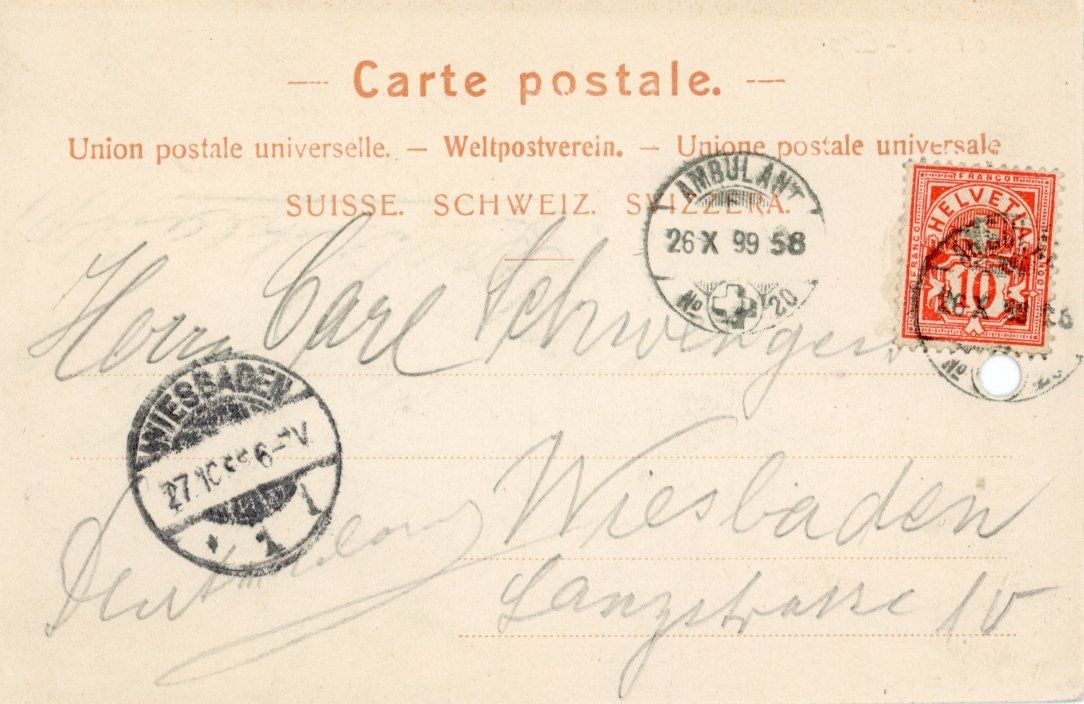 — Carte postale. —
Union postale universelle. — Weltpostverein. — Unione postale universale
SUISSE. SCHWEIZ. SVIZZERA.
AMBULANT
26 X 99 58
No 20
FRANCO
FRANCO
FRANCO
HELVETIA
10
26 X
No
Herrn Carl
WIESBADEN
27.10 6-7V
1
Wiesbaden
Lanzstrasse